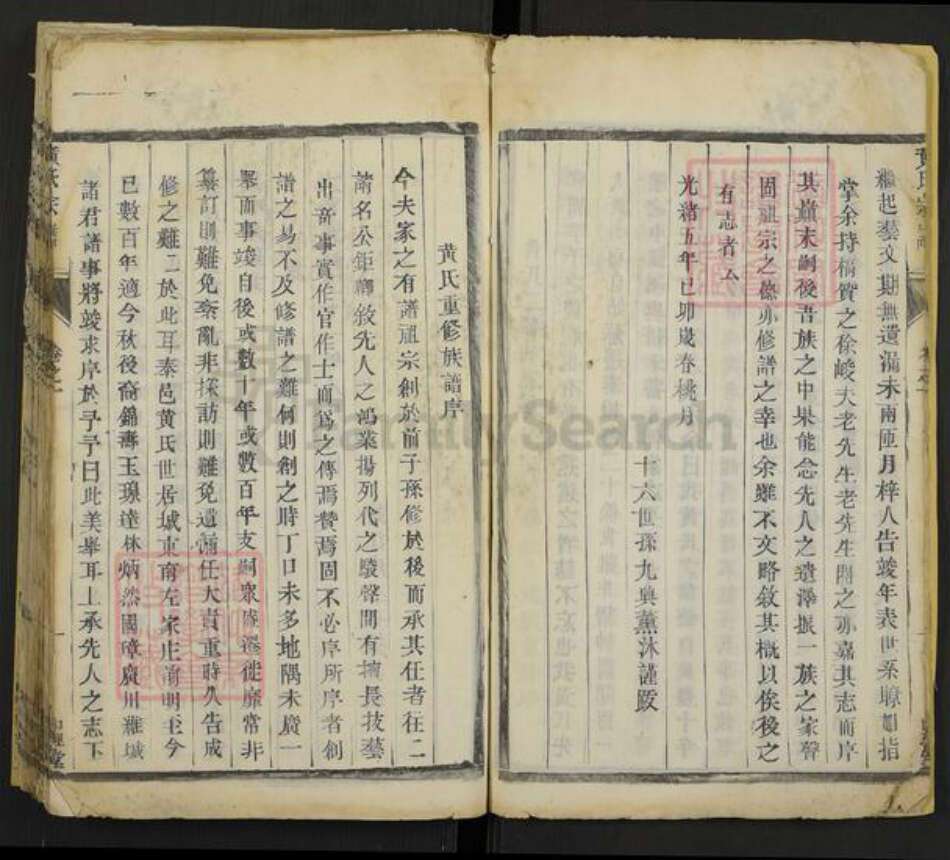 繼起藝文期無遺漏未兩匝月梓人告竣年表世系瞭如指
掌余持稿質之徐峻夫老先生老先生閱之亦嘉其志而序
其巔末嗣後吾族之中果能念先人之遺澤振一族之家聲
固祖宗之 亦修譜之幸也余雖不文略敘其概以俟後之
有志者云
光緒五年己卯歲春桃月
十六世孫九奥薰沐謹跋
黃氏重修族譜序
今夫家之有譜祖宗創於前子孫修於後而承其任者往二
請名公鉅 敘先人之鴻業揚列代之駿聲間有擅長技藝
出奇事實作官作士而為之傳焉贊焉固不必序所序者創
譜之易不及修譜之難何則創之時丁口未多地隅未廣一
舉而事竣自後或數十年或數百年支嗣衆盛遷徙靡常非
纂訂則難免紊亂非採訪則難免遺漏任大責重時久告成
修之難二於此耳泰邑黃氏世居城東南左家庄前明至今
已數百年適今秋後裔錦壽玉琅達林炳然國璋廣川維城
諸君譜事將竣求序於予予曰此美舉耳上承先人之志下
黃氏宗譜
卷之一
FamilySearch